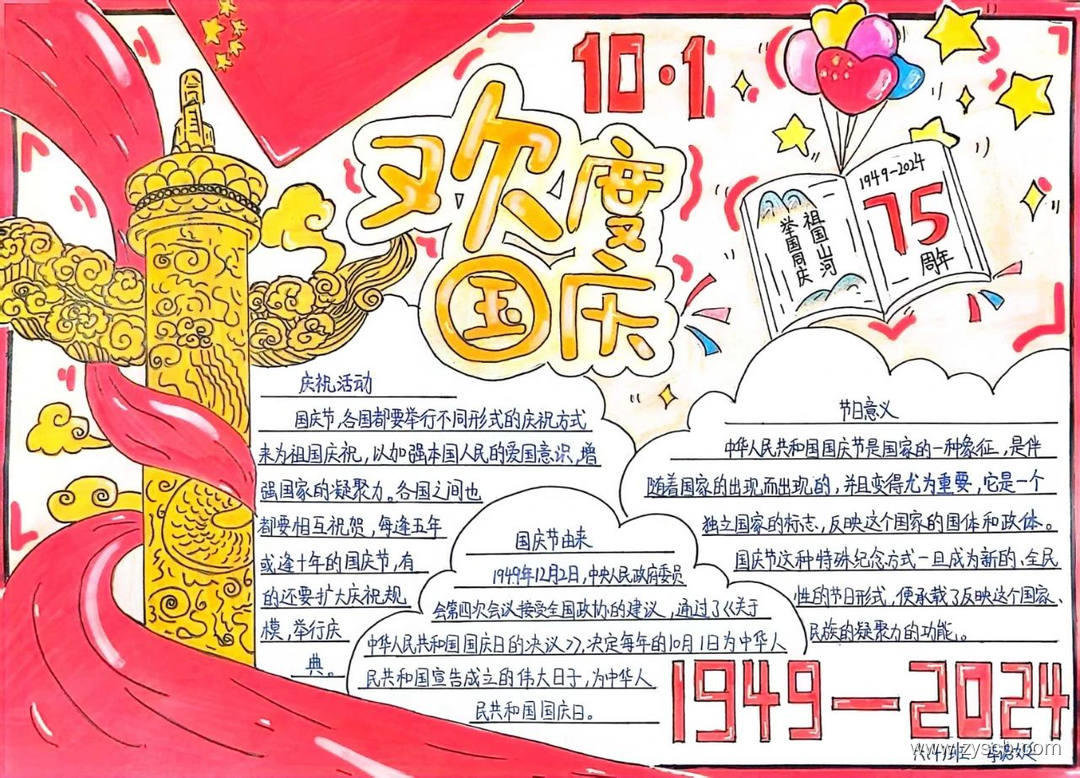 10·1
欢度
国庆
1949-2024
75
周年
祖国山河
举国同庆
庆祝活动
国庆节,各国都要举行不同形式的庆祝方式
来为祖国庆祝,以加强本国人民的爱国意识,增
强国家的凝聚力。各国之间也
都要相互祝贺,每逢五年
或逢十年的国庆节,有
的还要扩大庆祝规
模,举行庆
典。
国庆节由来
1949年12月2日,中央人民政府委员
会第四次会议接受全国政协的建议,通过了《关于
中华人民共和国国庆日的决议》,决定每年的10月1日为中华人
民共和国宣告成立的伟大日子,为中华人
民共和国国庆日。
节日意义
中华人民共和国国庆节是国家的一种象征,是伴
随着国家的出现而出现的,并且变得尤为重要,它是一个
独立国家的标志,反映这个国家的国体和政体。
国庆节这种特殊纪念方式一旦成为新的、全民
性的节日形式,便承载了反映这个国家、
民族的凝聚力的功能。
1949—2024